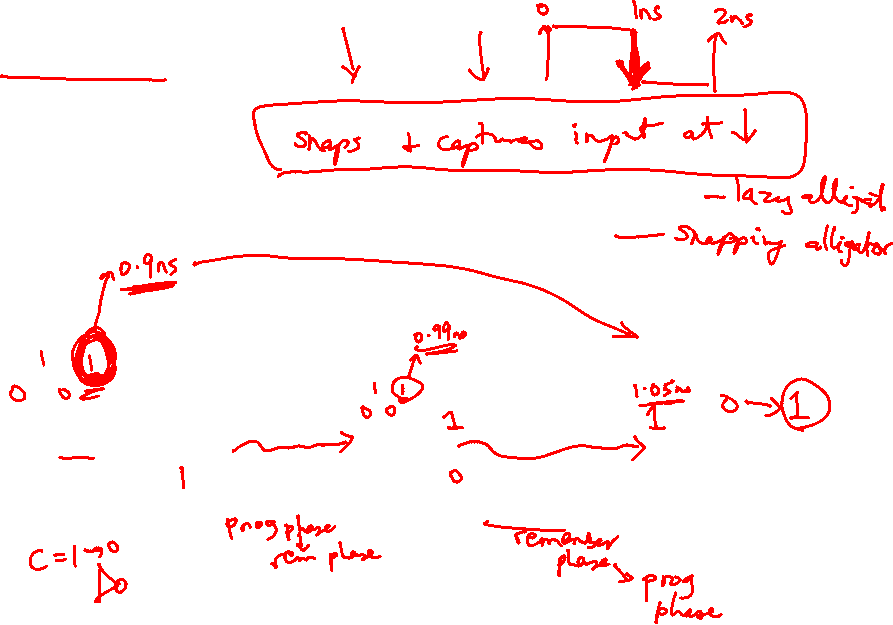 0 1ns 2ns
snaps + captures input at ↓
- lazy alligat
- snapping alligator
0.9ns
0.99ns
1 1
0 0
1 1
0 0
1
1.05ns
1
0 → 1
1
0
prog phase
rem phase
remember
phase
prog
phase
C = 1→0